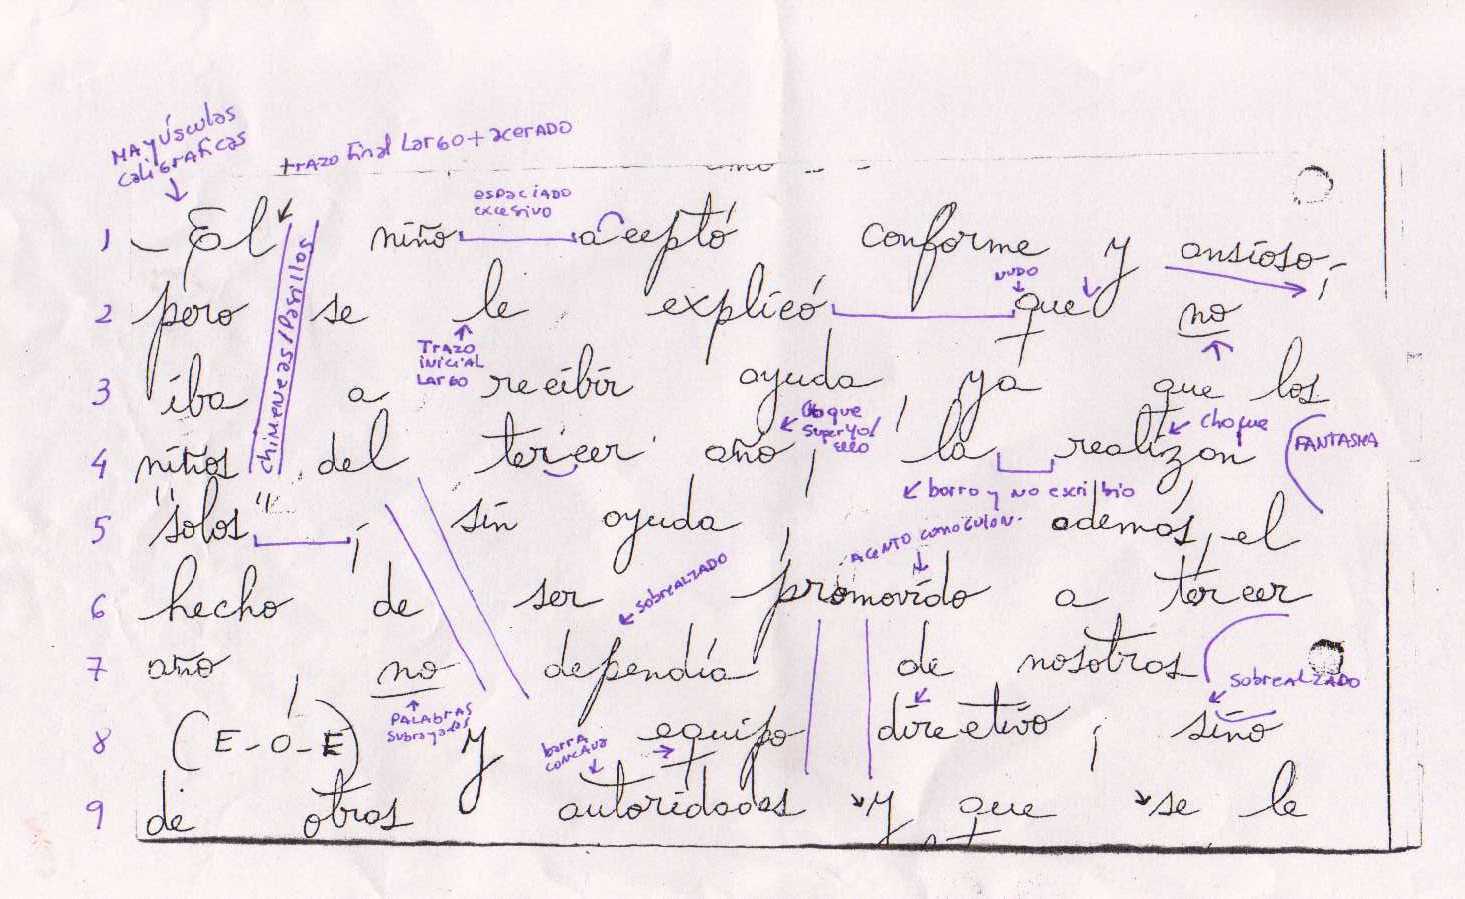 MAYÚSCULAS
CALIGRAFICAS
trazo final largo + acerado
espaciado
excesivo
1 - El niño aceptó conforme y ansioso,
nudo
2 pero se le explicó que no
Trazo
inicial
largo
chimeneas/Pasillos
3 iba a recibir ayuda, ya que los
choque
superyo/
ello
choque
FANTASMA
4 niños del tercer año, la realizan
borro y no escribio
5 "solos", sin ayuda, además, el
acento como gulon.
sobrealzado
6 hecho de ser promovido a tercer
7 año, no dependía de nosotros
sobrealzado
PALABRAS
subrayadas
8 (E-O-E) y equipo directivo, sino
barra
concava
9 de otras autoridades y que se le